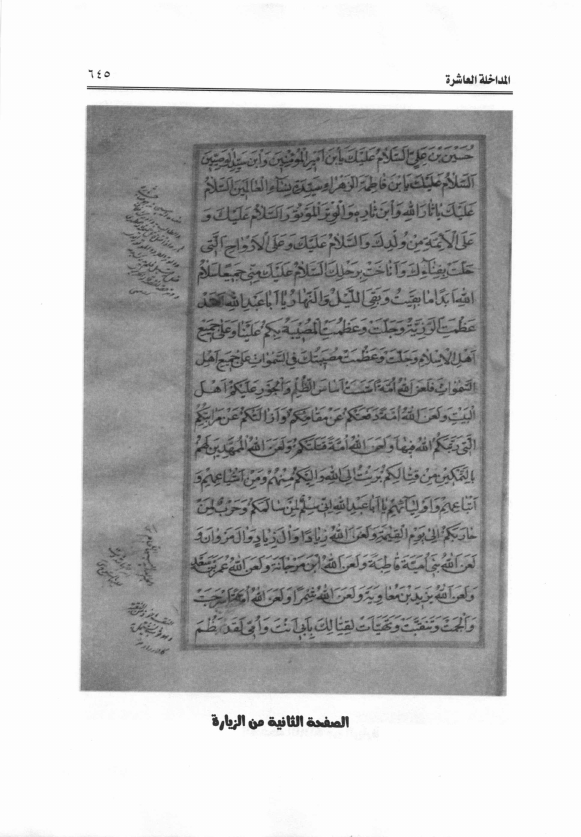 المداخلة العاشرة
٦٤٥
حُسَيْنِ بْنِ عَلِيٍّ اَلسَّلامُ عَلَيْكَ يَا بْنَ اَمِيرِ الْمُؤْمِنِينَ وَابْنَ سَيِّدِ الْوَصِيّينَ
اَلسَّلامُ عَلَيْكَ يَا بْنَ فَاطِمَةَ الزَّهْرَاءِ سَيِّدَةِ نِسَاءِ الْعَالَمِينَ اَلسَّلامُ
عَلَيْكَ يَا ثَارَ اللهِ وَابْنَ ثَارِهِ وَالْوِتْرَ الْمَوْتُورَ اَلسَّلامُ عَلَيْكَ وَ
عَلَى الْاَئِمَّةِ مِنْ وُلْدِكَ وَالسَّلامُ عَلَيْكَ وَعَلَى الْاَرْوَاحِ الَّتِي
حَلَّتْ بِفِنَائِكَ وَاَنَاخَتْ بِرَحْلِكَ اَلسَّلامُ عَلَيْكَ مِنّي جَمِيعًا سَلامُ
اللهِ اَبَدًا مَا بَقِيتُ وَبَقِيَ اللَّيْلُ وَالنَّهَارُ يَا اَبَا عَبْدِ اللهِ لَقَدْ
عَظُمَتِ الرَّزِيَّةُ وَجَلَّتْ وَعَظُمَتِ الْمُصِيبَةُ بِكُمْ عَلَيْنَا وَعَلَى جَمِيعِ
اَهْلِ الْاِسْلامِ وَجَلَّتْ وَعَظُمَتْ مُصِيبَتُكَ فِي السَّمٰوَاتِ عَلَى جَمِيعِ اَهْلِ
السَّمٰوَاتِ فَلَعَنَ اللهُ اُمَّةً اَسَّسَتْ اَسَاسَ الظُّلْمِ وَالْجَوْرِ عَلَيْكُمْ اَهْلَ
الْبَيْتِ وَلَعَنَ اللهُ اُمَّةً دَفَعَتْكُمْ عَنْ مَقَامِكُمْ وَاَزَالَتْكُمْ عَنْ مَرَاتِبِكُمُ
الَّتِي رَتَّبَكُمُ اللهُ فِيهَا وَلَعَنَ اللهُ اُمَّةً قَتَلَتْكُمْ وَلَعَنَ اللهُ الْمُمَهِّدِينَ لَهُمْ
بِالتَّمْكِينِ مِنْ قِتَالِكُمْ بَرِئْتُ اِلَى اللهِ وَاِلَيْكُمْ مِنْهُمْ وَمِنْ اَشْيَاعِهِمْ وَ
اَتْبَاعِهِمْ وَاَوْلِيَائِهِمْ يَا اَبَا عَبْدِ اللهِ اِنّي سِلْمٌ لِمَنْ سَالَمَكُمْ وَحَرْبٌ لِمَنْ
حَارَبَكُمْ اِلَى يَوْمِ الْقِيٰمَةِ وَلَعَنَ اللهُ زِيَادًا وَاٰلَ زِيَادٍ وَاٰلَ مَرْوَانَ وَ
لَعَنَ اللهُ بَنِي اُمَيَّةَ قَاطِبَةً وَلَعَنَ اللهُ ابْنَ مَرْجَانَةَ وَلَعَنَ اللهُ عُمَرَ بْنَ سَعْدٍ
وَلَعَنَ اللهُ يَزِيدَ بْنَ مُعَاوِيَةَ وَلَعَنَ اللهُ شِمْرًا وَلَعَنَ اللهُ اُمَّةً اَسْرَجَتْ
وَاَلْجَمَتْ وَتَنَقَّبَتْ وَتَهَيَّأَتْ لِقِتَالِكَ بِاَبِي اَنْتَ وَاُمّي لَقَدْ عَظُمَ
الصفحة الثانية من الزيارة